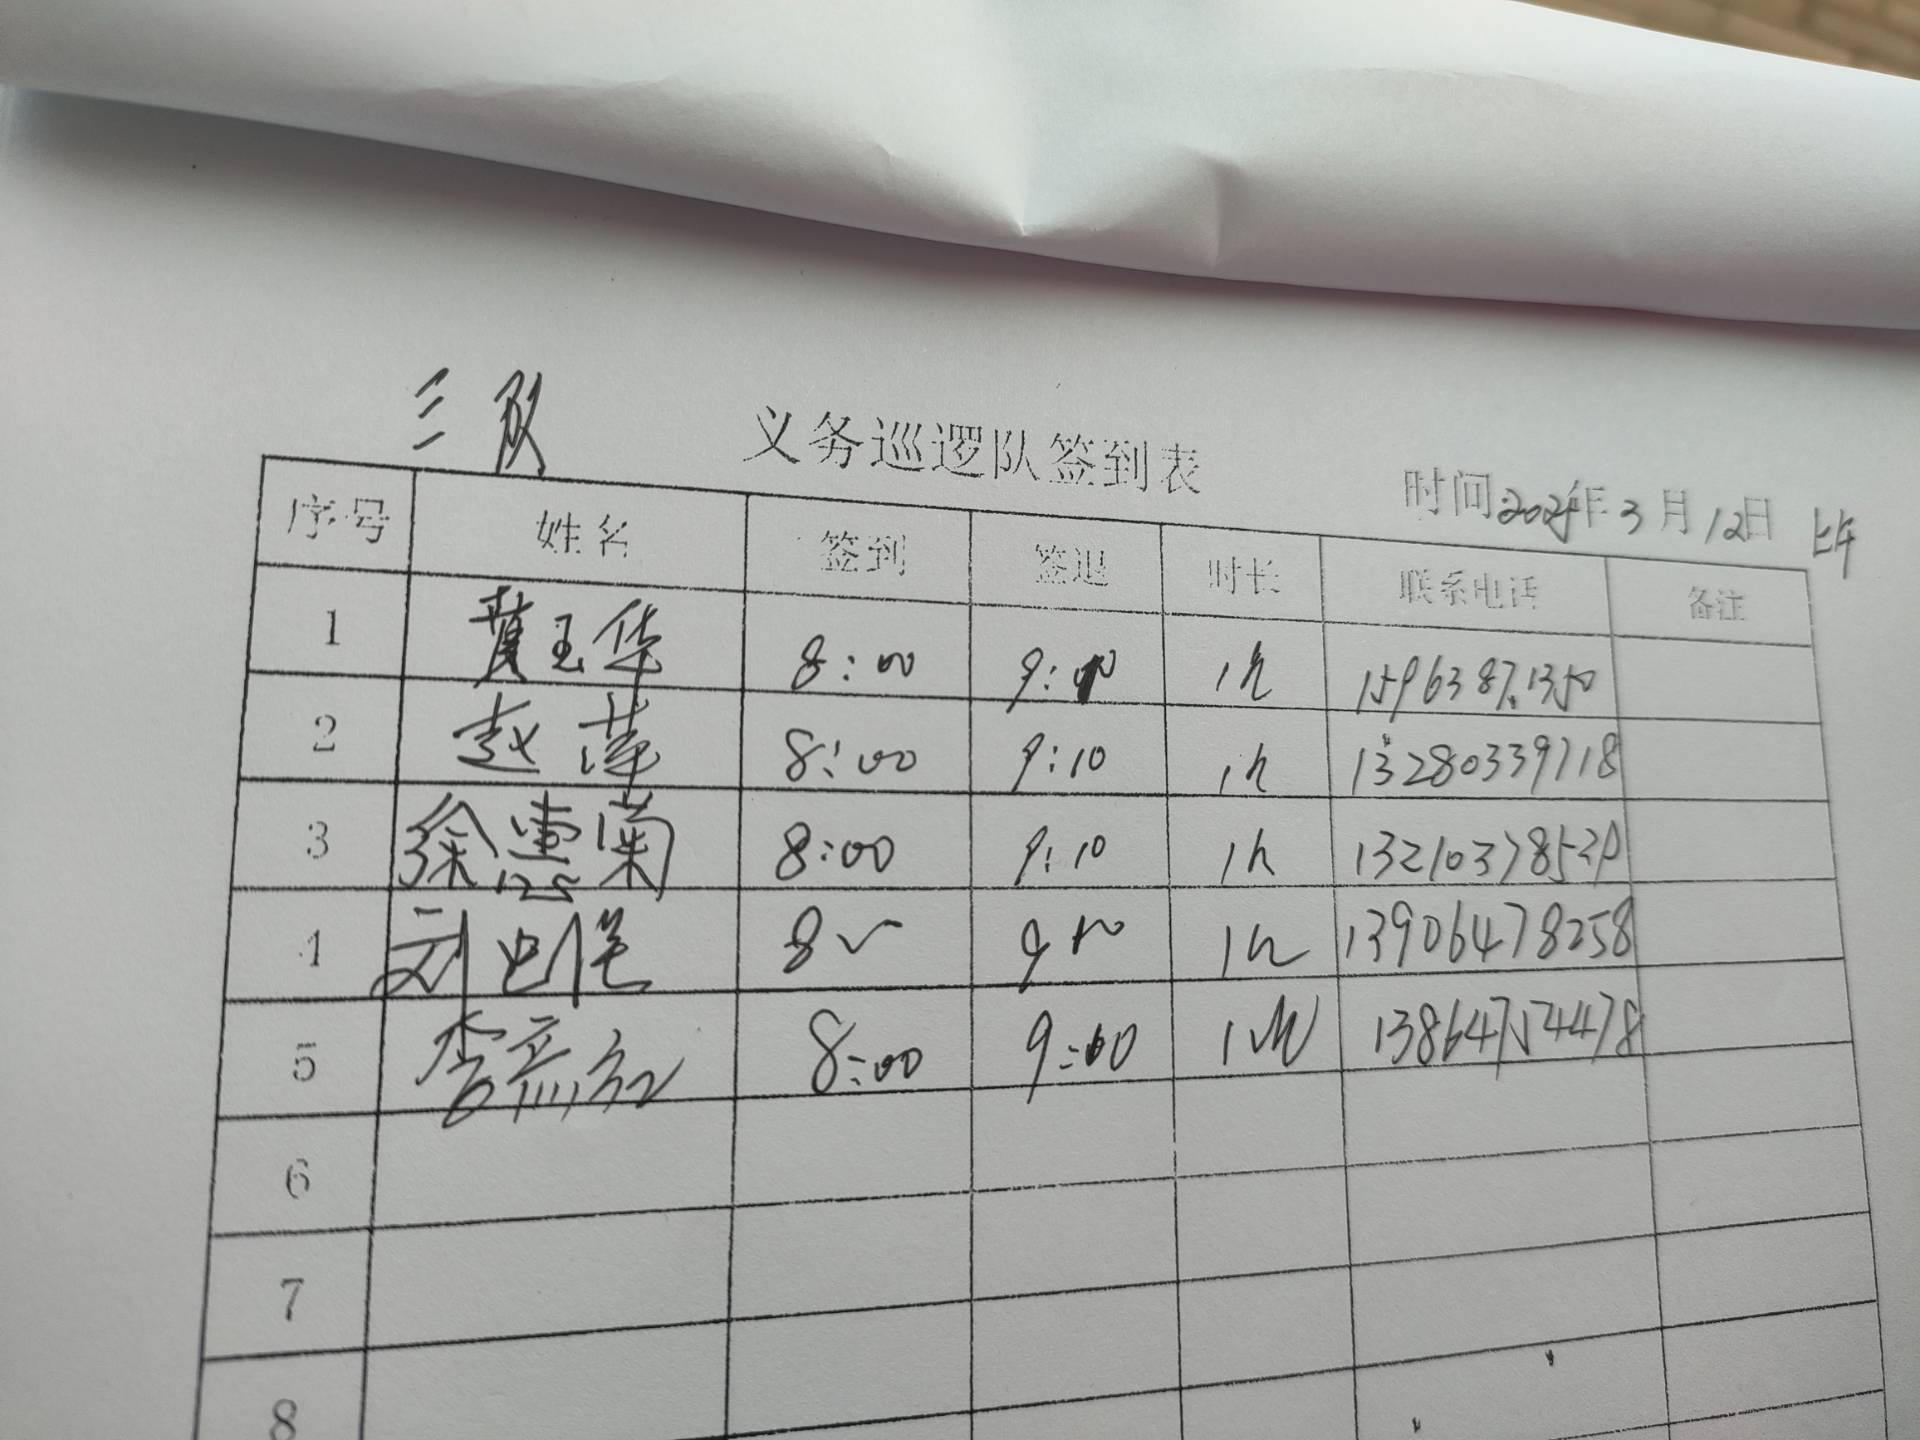 三队
义务巡逻队签到表
时间2024年3月12日 上午
序号 姓名 签到 签退 时长 联系电话 备注
1 黄玉华 8:00 9:10 1h 15963871350
2 赵莲 8:00 9:10 1h 13280339718
3 徐惠菊 8:00 9:10 1h
4 刘 8 9 1h 13906478258
5 李燕红 8:00 9: 1h 13864754478
6
7
8